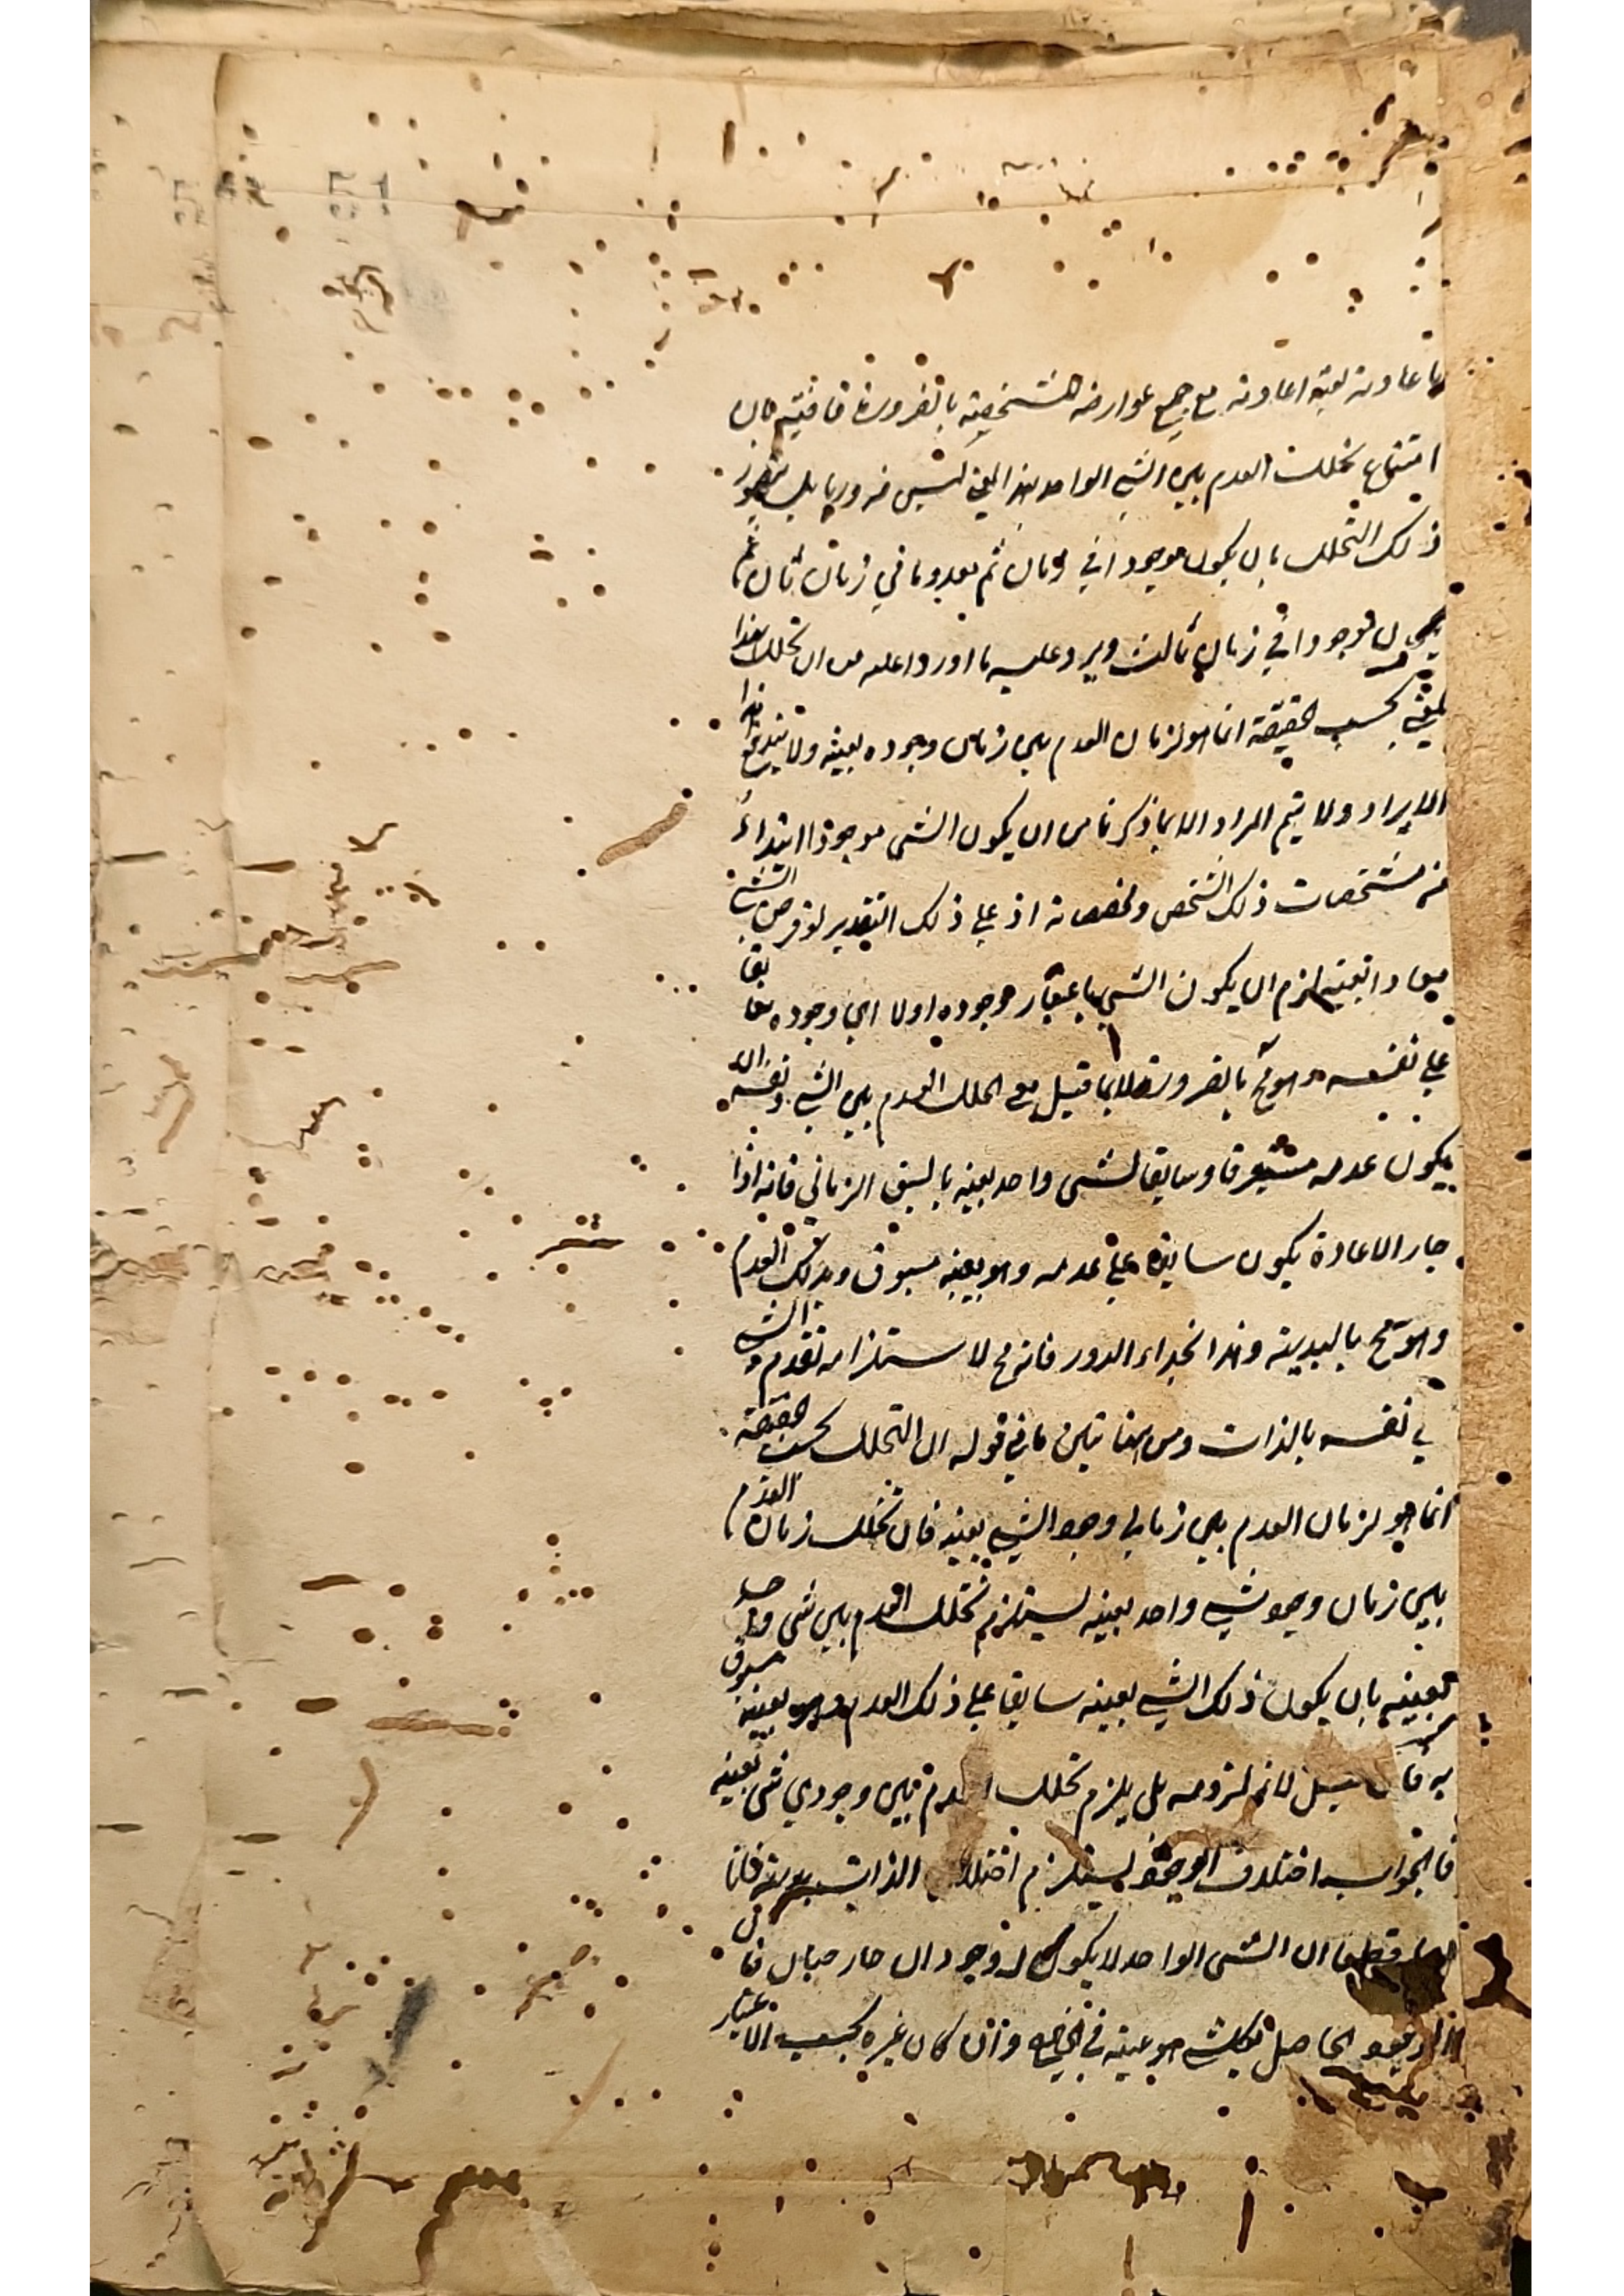 ما عادته بعينه اعادته مع جميع عوارضه المشخصة بالضرورة فافهم فان
امتناع تخلل العدم بين الشي الواحد بهذا المعنى ليس ضروريا بل يتصور
ذلك التخلل بان يكون موجودا في زمان ثم معدوما في زمان ثان ثم
يكون موجودا في زمان ثالث ويرد عليه ما اورد اعليه من ان تخلل هذا
بحسب الحقيقة انما هو لزمان العدم بين زماني وجوده بعينه ولا يندفع هذا
الايراد ولا يتم المراد الا بما ذكرنا من ان يكون الشي موجودا ابتداء
من مشخصات ذلك الشخص ومخصصاته اذ على ذلك التقدير لو فرض الشي
معادا بعينه لزم ان يكون الشي باعتبار وجوده اولا اي وجوده سابقا
على نفسه وهو مح بالضرورة لا بما قيل مع تخلل العدم بين الشي ونفسه ان
يكون عدمه مسبوقا وسابقا لشي واحد بعينه بالسبق الزماني فانه اذا
جاز الاعادة يكون سابقا على عدمه وهو بعينه مسبوق وبذلك العدم
وهو مح بالبديهة وهذا بحذاء الدور فانه مح لاستلزامه تقدم الشي
على نفسه بالذات ومن ههنا تبين ما في قوله ان التخلل بحسب الحقيقة
انما هو لزمان العدم بين زماني وجود الشي بعينه فان تخلل زمان العدم
بين زماني وجود شي واحد بعينه يستلزم تخلل العدم بين شي واحد
بعينه بان يكون ذلك الشي بعينه سابقا على ذلك العدم وهو بعينه مسبوق
به فان قيل لانم لزومه بل يلزم تخلل العدم بين وجودي شي بعينه
فالجواب اختلاف الوجود يستلزم اختلاف الذات فانا
ان الشي الواحد لا يكون له وجودان فان
الحاصل هو عينه في الخارج وان كان غيره بحسب الاعتبار